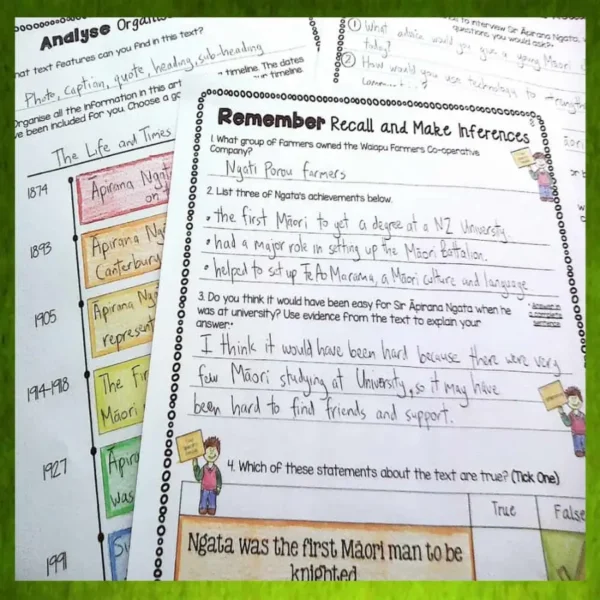 Analyse Organis
hat text features can you find in this text?
Photo, caption, quote, heading, sub-heading
Organise all the information in this art
timeline. The dates
ve been included for you. Choose a
timeline.
The Life and Times
1874
Āpirana Ngat
on
1893
Āpirana Ng
Canterbury
1905
Āpirana Nga
represent
1914-1918
The Fir
Māori
1927
Āpira
was
1991
to interview Sir Āpirana Ngata,
questions you would ask?
① What advice would you give a young Māori
today?
② How would you use technology to strength
Remember Recall and Make Inferences
1. What group of Farmers owned the Waiapu Farmers Co-operative
Company?
Ngati Porou farmers
2. List three of Ngata's achievements below.
• the first Māori to get a degree at a NZ University
• had a major role in setting up the Māori Battalion.
• helped to set up Te Ao Marama, a Māori culture and language
3. Do you think it would have been easy for Sir Āpirana Ngata when he
was at university? Use evidence from the text to explain your
answer.*
* Answer in
a complete
sentence
I think it would have been hard because there were very
few Māori studying at University, so it may have
been hard to find friends and support.
4. Which of these statements about the text are true? (Tick One)
True False
Ngata was the first Māori man to be
knighted